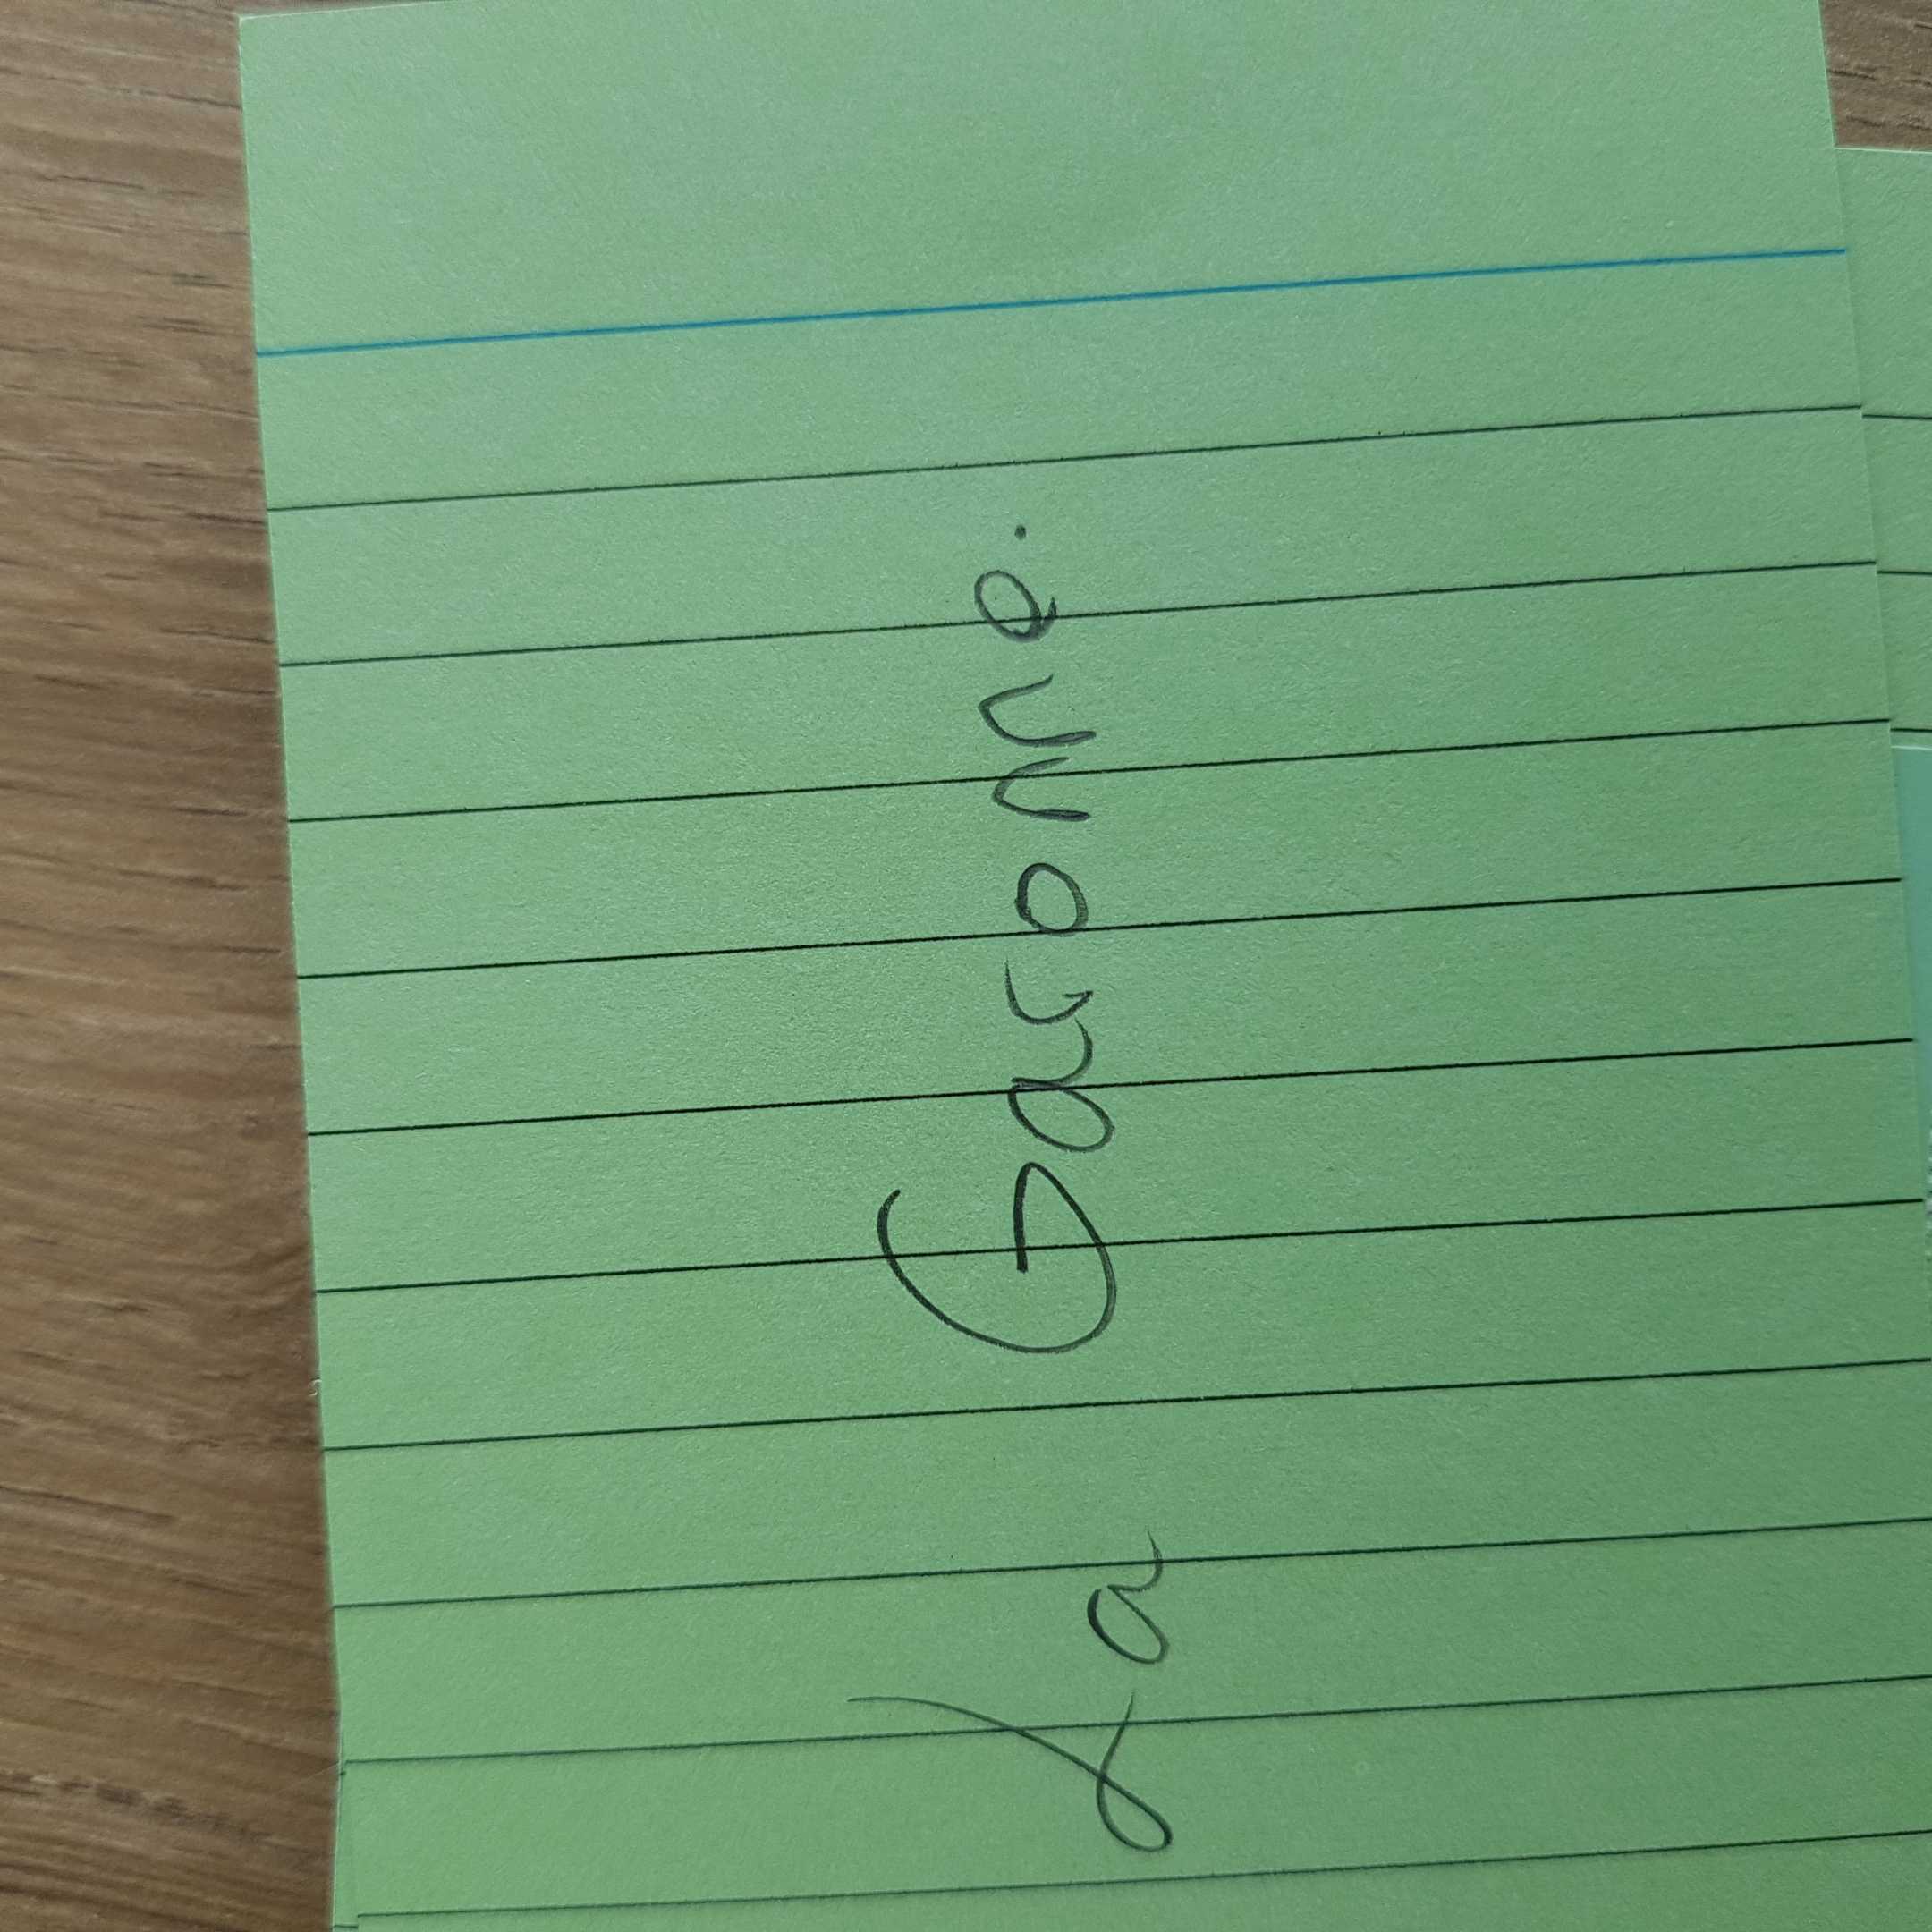 La Garonne.